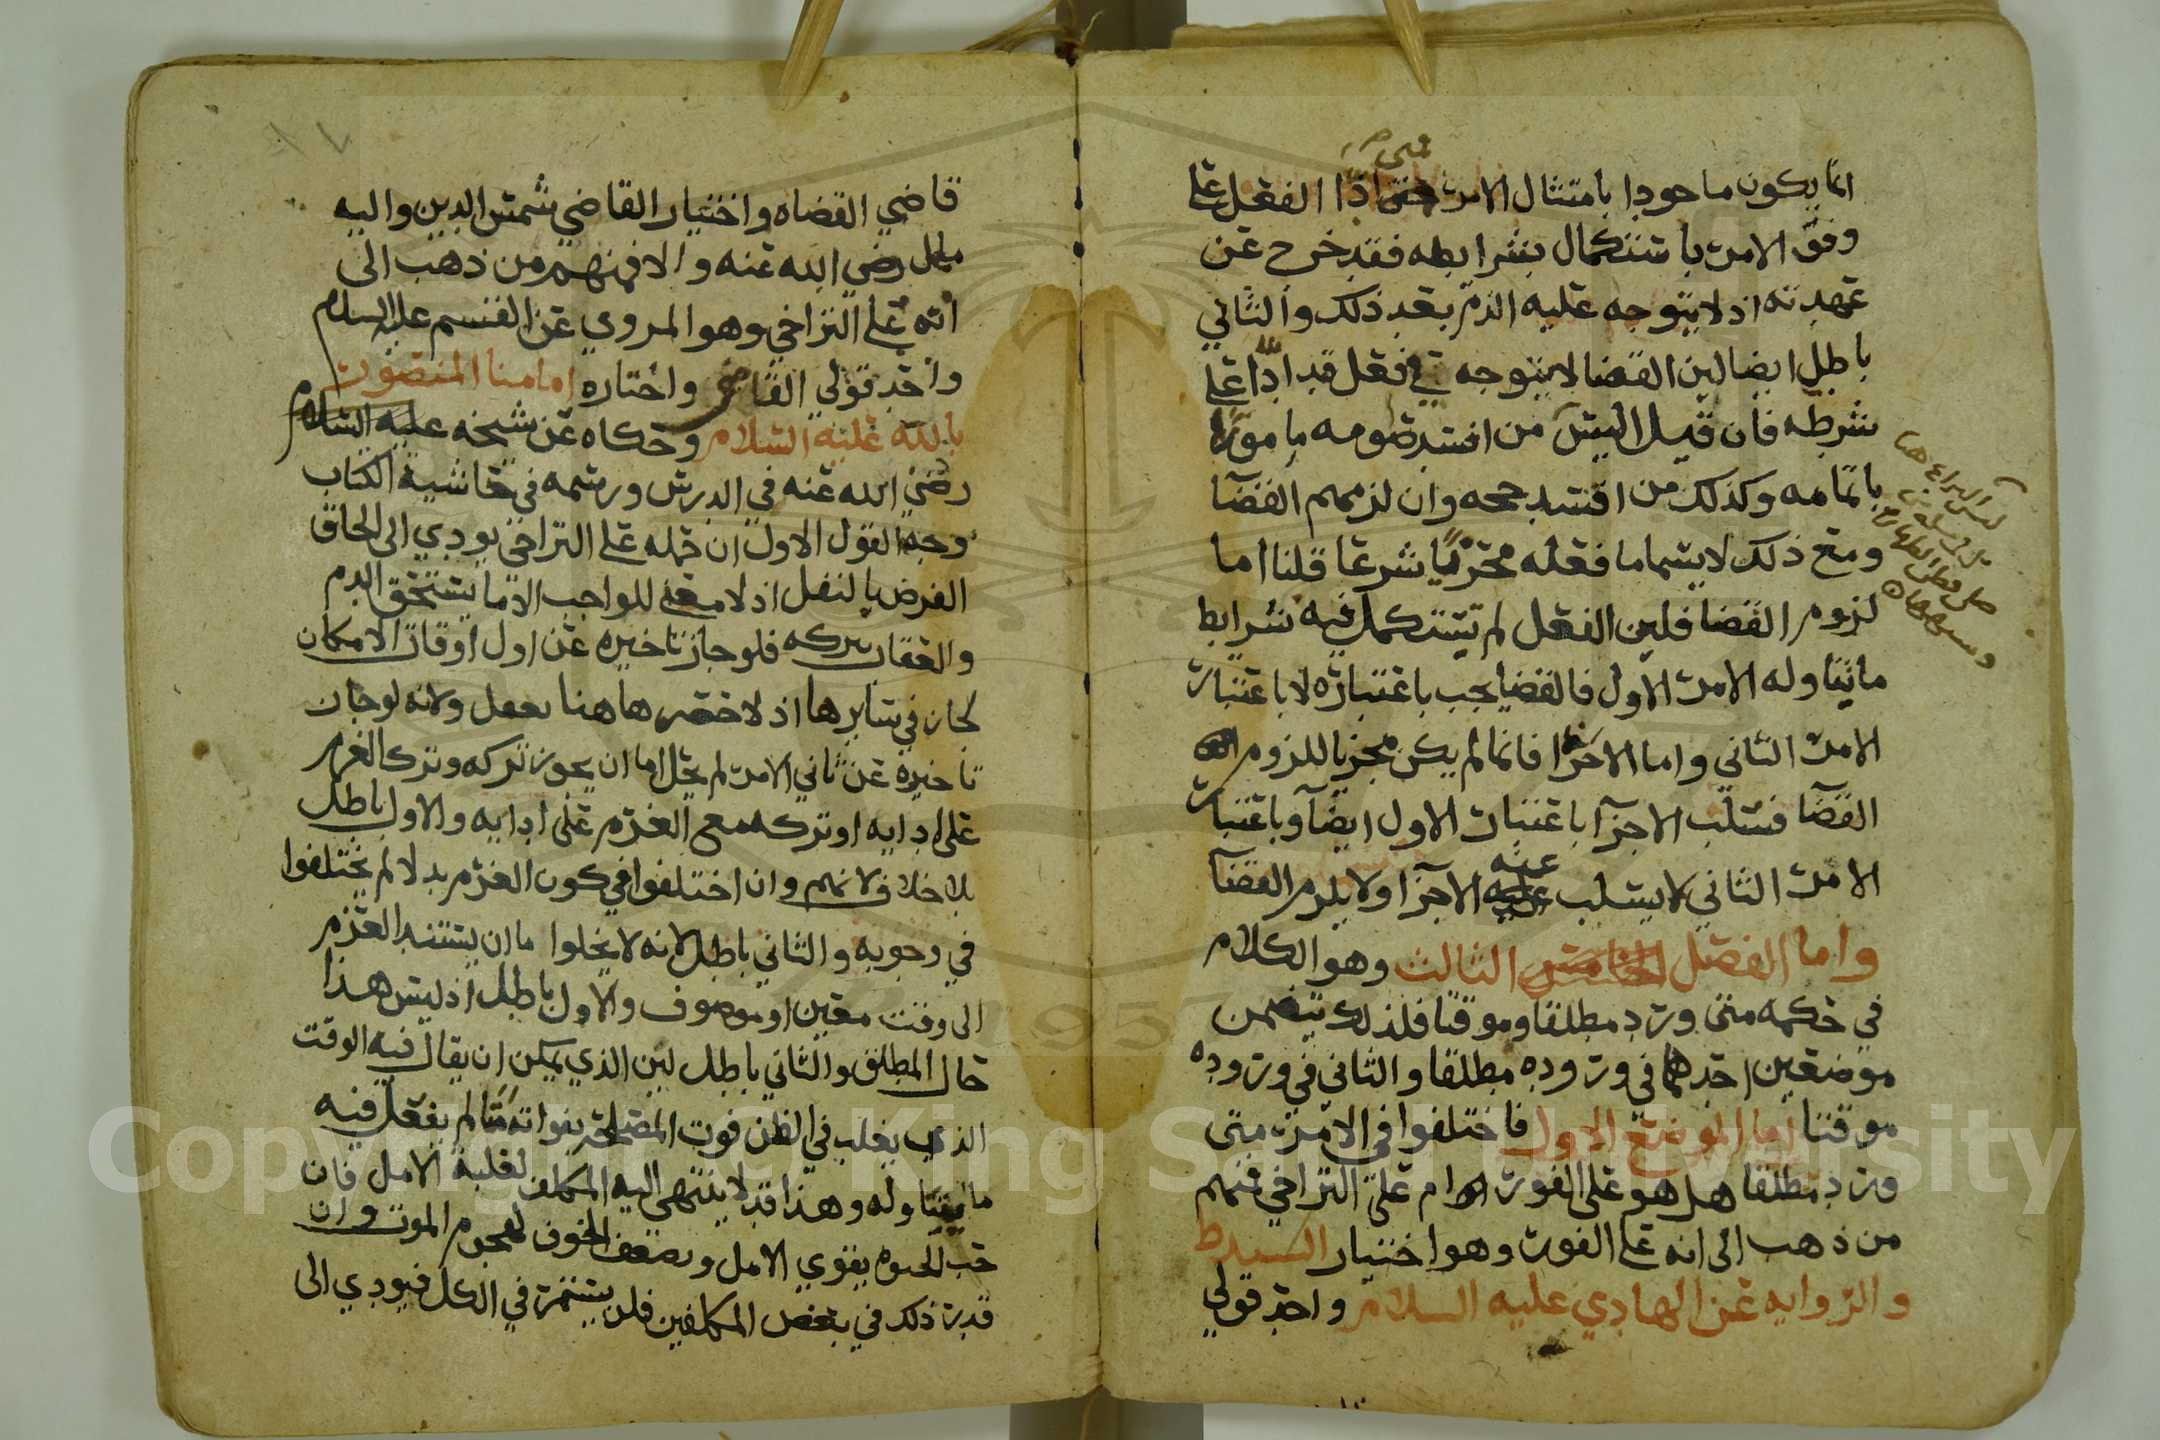 انما يكون ماخوذا بامتثال الامر فمتى ادا الفعل على
وفق الامر باستكمال شرايطه فقد خرج عن
عهدته اذ لا يتوجه عليه الذم بعد ذلك والثاني
باطل ايضا لين القضا لا يتوجه في فعل قد ادا على
شرطه فان قيل اليس من افسد صومه مامورا
باتمامه وكذلك من افسد حجه وان لزمهم القضآ
ومع ذلك لا يسما ما فعله مجزيا شرعا قلنا اما
لزوم القضا فلين الفعل لم يستكمل فيه شرايط
ما تناوله الامر الاول فالقضا يجب باعتباره لا باعتبار
الامر الثاني واما الاجزا فانما لم يكن مجزيا للزوم
القضآ فسلب الاجزآ باعتبار الاول ايضآ وباعتبار
الامر الثاني لا يسلب عنه الاجزآ ولا يلزم القضآ
واما الفصل الثالث وهو الكلام
في حكمه متى ورد مطلقا وموقتا فلذلك يتضمن
موضعين احدهما في وروده مطلقا والثاني في وروده
موقتا اما الموضع الاول فاختلفوا في الامر متى
ورد مطلقا هل هو على الفور ام على التراخي فمنهم
من ذهب الى انه على الفور وهو اختيار السيد ط
والروايه عن الهادي عليه السلام واحد قولي
قاضي القضاه واختيار القاضي شمس الدين واليه
مال رضي الله عنه والا فمنهم من ذهب الى
انه على التراخي وهو المروي عن القسم عليه السلام
واحد قولي القاضي واختاره امامنا المنصور
بالله عليه السلام وحكاه عن شيخه عليه السلام
رضي الله عنه في الدرس ورسمه في حاشية الكتاب
وجه القول الاول ان حمله على التراخي يودي الى الحاق
الفرض بالنفل اذ لا معنى للواجب الا ما يستحق الذم
والعقاب بتركه فلو جاز تاخيره عن اول اوقات الامكان
لجاز في سايرها اذ لا حصر هاهنا يعقل ولانه لو جاز
تاخيره عن ثاني الامر لم يخل اما ان يجوز تركه وترك العزم
على ادايه او تركه مع العزم على ادايه والاول باطل
بلا خلاف لانهم وان اختلفوا في كون العزم بدلا لم يختلفوا
في وجوبه والثاني باطل لانه لا يخلوا ما ان يستند العزم
الى وقت معين او موصوف والاول باطل اذ ليس هذا
حال المطلق والثاني باطل لين الذي يمكن ان يقال فيه الوقت
الذي يغلب في الظن فوت المصلحة بفواته متا لم يفعل فيه
ما يتناوله وهذا قد لا ينتهي اليه المكلف لغلبة الامل فان
حب الحيوه يقوي الامل ويضعف الخوف لهجوم الموت وان
قدر ذلك في بعض المكلفين فلن يستمر في الكل فيودي الى